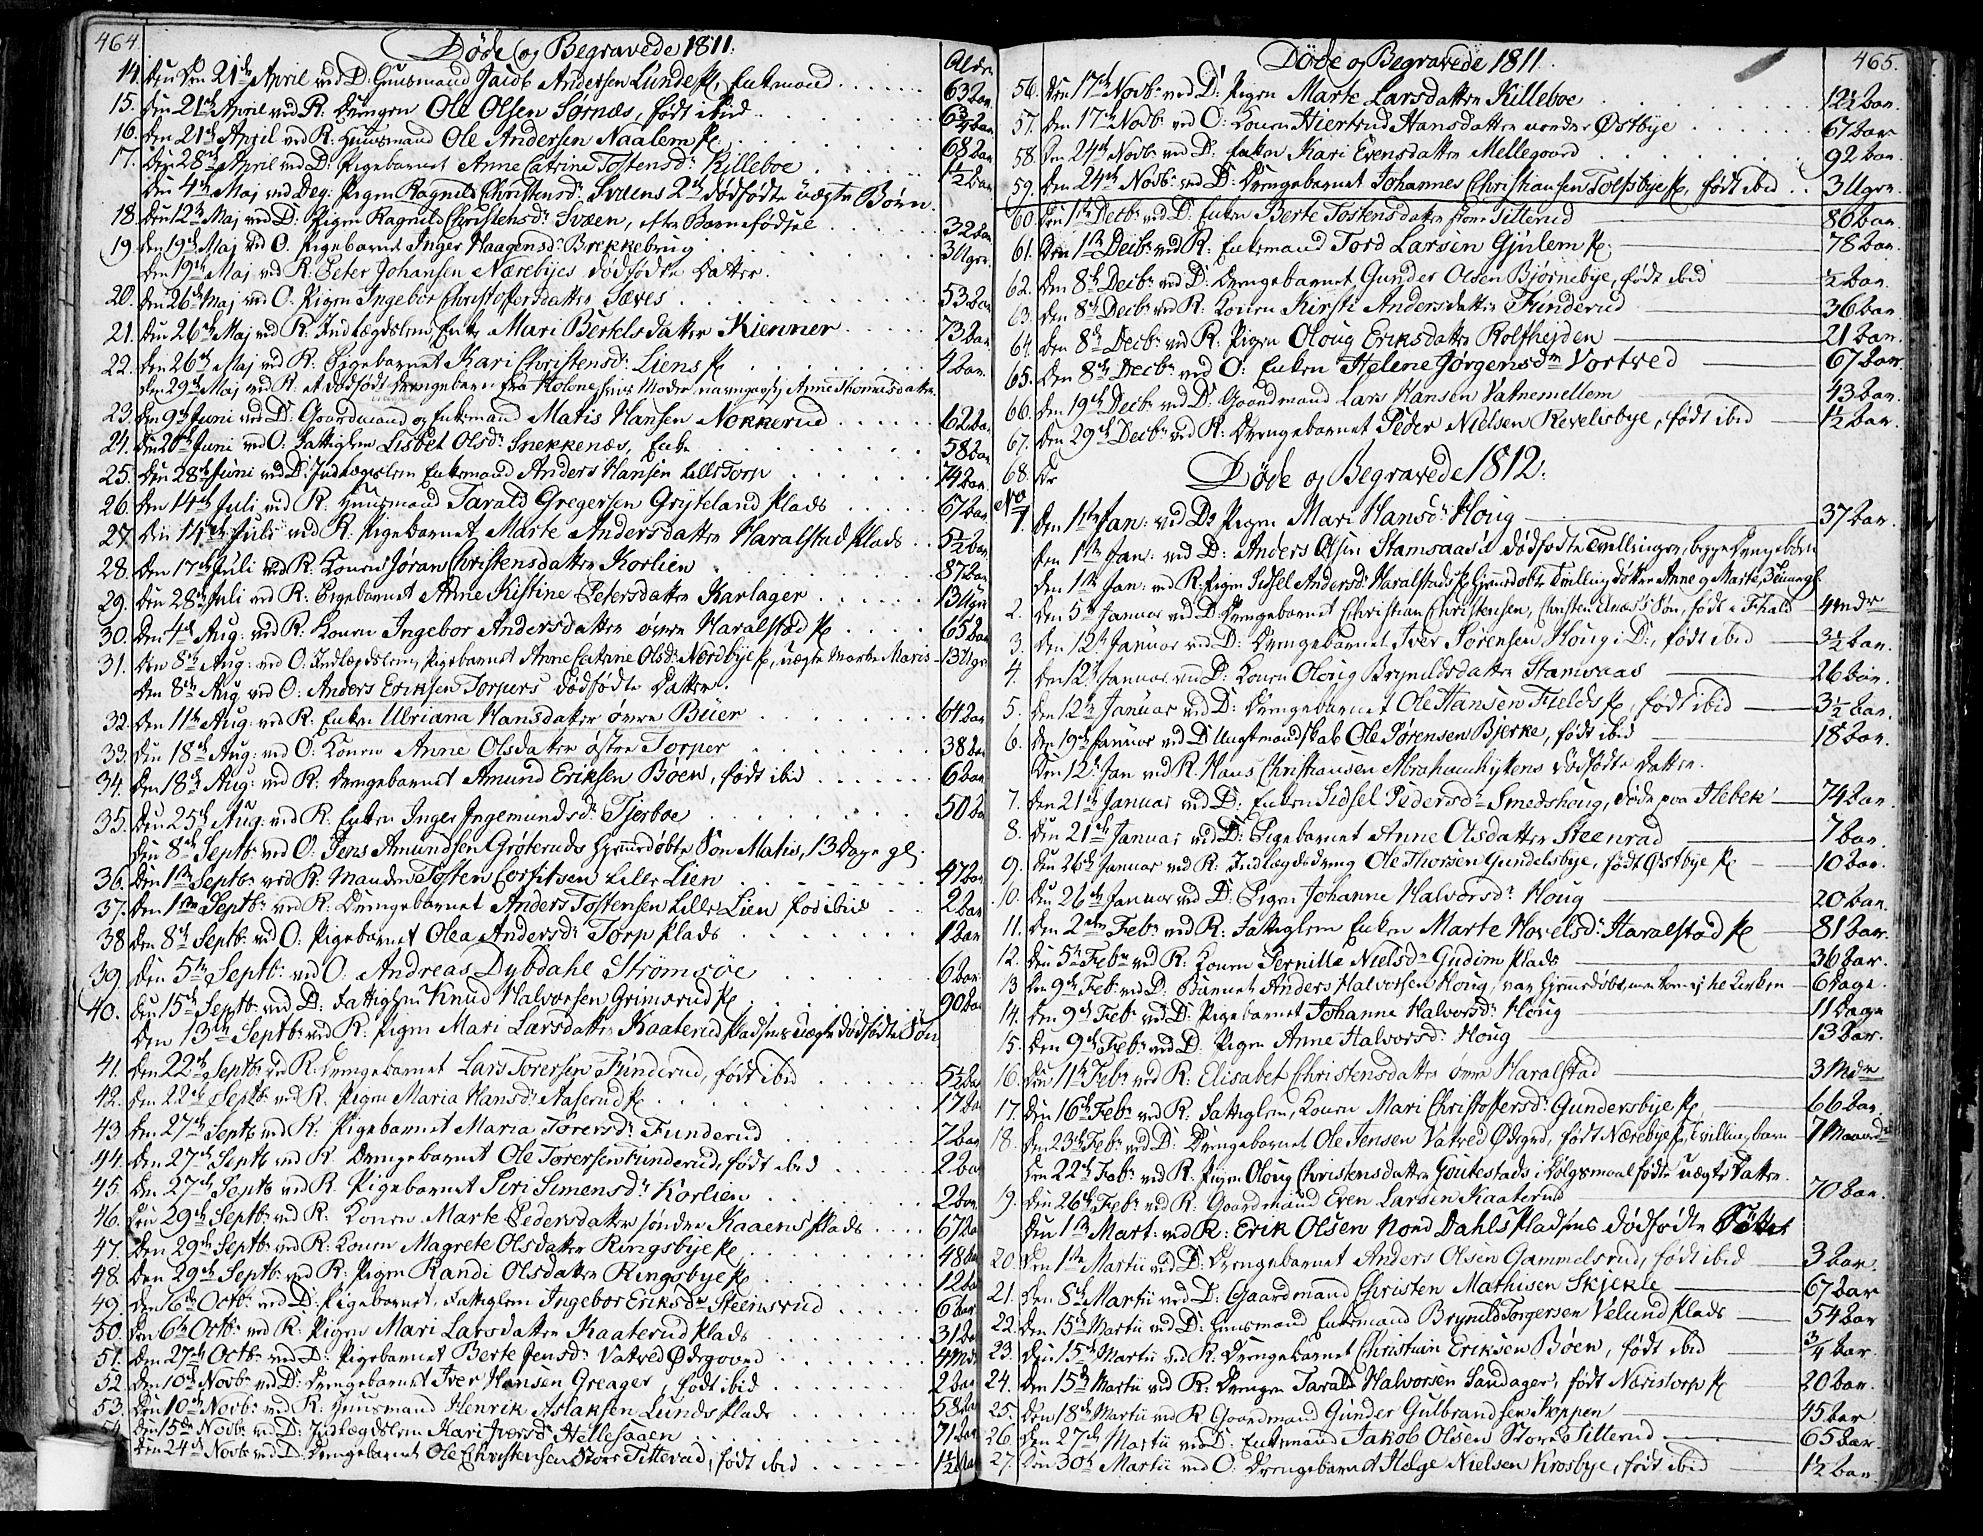 464.
Døde og Begravede 1811.
Alder
14. Den 21de April ved D: Huusmand Jacob Andersen Lunde Pl, Enkemand 63 aar.
15. Den 21de April ved R. Drengen Ole Olsen Sørnæs, født ibid 6¾ aar
16. Den 21de April ved R: Huusmand Ole Andersen Naalem Pl. 68 aar
17. Den 28de April ved D: Pigebarnet Anne Catrine Tostensdr Killeboe 1½ aar
Den 4de Maj ved Deg: Pigen Ragnild Christensdr Svaens 2de dødfødte uægte Børn.
18. Den 12te Maj ved D: Pigen Ragnild Christensdr Svaen, efter Barnefødsel 32 aar
19. Den 19de Maj ved O. Pigebarnet Inger Haagensdr Brekkebrug 3 Uger.
Den 19de Maj ved R: Peter Johansen Nærebyes dødfødte Datter.
20. Den 26de Maj ved O. Pigen Ingebor Christophersdatter Sæves 53 aar
21. Den 26de Maj ved R: Indlægdslem, Enke Mari Bertelsdatter Kienner 73 aar
22. Den 26de Maj ved R: Pigebarnet Kari Christensdr Liens Pl 4 aar.
Den 29de Maj ved R. et dødfødt Drengebarn fra Holene hvis Moder navngaves Anne Thomesdatter
23. Den 9de Juni ved D: Gaardmand og Enkemand Matis Hansen Nokkerud 62 aar
24. Den 20de Juni ved O. Fattiglem Lisbet Olsdr Snekkenæs, Enke 58 aar
25. Den 28de Juni ved D: Indlægdslem Enkemand Anders Hansen Lille Torp 74 aar
26. Den 14de Juli ved R. Huusmand Tarald Gregersen Gryteland Plads 67 aar
27. Den 14de Juli ved R. Pigebarnet Marte Andersdatter Haralstad Plads 5½ aar
28. Den 17de Juli ved R: Konen Jøran Christensdatter Korlien 87 aar
29. Den 28de Juli ved R: Pigebarnet Anne Kistine Petersdatter Karlager 13 Uger
30. Den 4de Aug: ved R: Konen Ingebor Andersdatter øvre Haralstad Pl 65 aar
31. Den 8de Aug: ved O: Indlægdslem, Pigebarnet Anne Catrine Olsdr Nordbye Pl, uægte Moder Maris 13 Uger
Den 8de Aug ved O: Anders Eriksen Torpers dødfødte Datter.
32. Den 11te Aug: ved R: Enken Ulriana Hansdatter øvre Büer 64 aar
33. Den 18de Aug: ved O: Konen Anne Olsdatter østre Torper 38 aar
34. Den 18de Aug: ved R: Drengebarnet Amund Eriksen Bøen, født ibid 6 aar
35. Den 25de Aug. ved R: Enken Inger Ingemundsdr Tjerboe 50 aar
Den 8de Septb: ved O: Jens Amundsen Grøteruds hjemmedøbte Søn Matis, 13 Dage gl.
36. Den 1te Septb: ved R: Manden Tosten Corfitsen Lille Lien 47 aar
37. Den 1te Septb: ved R: Drengebarnet Anders Tostensen Lille Lien fød ibid 2 aar
38. Den 8de Septb: ved O: Pigebarnet Olea Andersdr Torp Plads 1 aar
39. Den 5te Septb: ved O: Andreas Dybdahl Strömsöe 6 aar
40. Den 15de Septb: ved D: Fattiglem Knud Halvorsen Grimsrud Pl. 90 aar
Den 13de Septb: ved R: Pigen Mari Larsdatter Kaaterud Pladsens uægte dødfødte Søn
41. Den 22de Septb: ved R. Drengebarnet Lars Torersen Funderud, født ibid 5½ aar
42. Den 22de Septb: ved R. Pigen Maria Hansdr Aaserud Pl 17 aar
43. Den 27de Septb ved R: Pigebarnet Maria Torersdr Funderud 7 aar
44. Den 27de Septb ved R. Drengebarnet Ole Torersen Funderud, født ibid 2 aar
45. Den 27de Septb ved R. Pigebarnet Siri Simensdr Korlien 2 aar
46. Den 29de Septb: ved R. Konen Marte Pedersdatter søndre Kaaens Plads 67 aar
47. Den 29de Septb: ved R: Konen Magrete Olsdatter Ringsbye Pl 48 aar
48. Den 29de Septb: ved R: Pigen Randi Olsdatter Ringsbye Pl 12 aar
49. Den 6te Octb: ved D: Pigebarnet, Fattiglem Ingebor Eriksdr Steensrud 6 aar
50. Den 6te Octb: ved R: Pigen Mari Larsdatter Kaaterud Plads 31 aar
51. Den 27de Octb: ved D: Pigebarnet Berte Jensdr Vatved Ødegaard 4 Md.
52. Den 10de Novb: ved D: Drengebarnet Iver Hansen Greager, født ibid 2 aar
53. Den 10de Novb: ved R. Huusmand Henrik Aslaksen Lunds Plads 58 aar
54. Den 15de Novb: ved D: Indlægdslem Kari Iversdr Hellesaaen 71 aar
Den 24de Novb: ved D: Drengebarnet Ole Christensen Store Titterud, født ibid 1½ aar
465.
Døde og Begravede 1811.
56. Den 17de Novb: ved D: Pigen Marte Larsdatter Killeboe 12½ aar.
57. Den 17de Novb: ved O: Konen Hiertrud Hansdatter nordre Østbye 67 aar
58. Den 24de Novb: ved D: Enken Kari Evensdatter Mellegaard 92 aar
59. Den 24de Novb: ved D: Drengebarnet Johannes Christiansen Tolfsbye Pl, født ibid 3 Uger
60. Den 1te Decb: ved D: Enken Berte Tostensdatter Store Titterud 80 aar
61. Den 1te Decb: ved R: Enkemand Tord Larsen Gjulem Pl. 78 aar.
62. Den 8de Decb: ved D: Drengebarnet Gunder Olsen Bjørnebye, født ibid ½ aar.
63. Den 8de Decb: ved R: Konen Kirsti Andersdatter Funderud 36 aar
64. Den 8de Decb: ved R: Pigen Oloug Eriksdatter Rolfhejden 21 aar
65. Den 8de Decb: ved O: Enken Helene Jørgensdr Vortved 67 aar
66. Den 19de Decb: ved D: Gaardmand Lars Hansen Vatnemellem 43 aar.
67. Den 29de Decb: ved R: Drengebarnet Peder Nielsen Revelsbye, født ibid 1½ aar.
68. De
Døde og Begravede 1812.
No
1. Den 1te Jan: ved D: Pigen Mari Hansdr Houg 37 aar.
Den 1te Jan: ved D: Anders Olsen Stamsaas's dødfødte Tvillinger, begge Drengebørn
Den 1te Jan: ved R: Pigen Sidsel Andersdr Haralstads Pl hjemdøbte Tvillingdøttre Anne og Marte, 3 Uger gl.
2. Den 5te Januar ved D: Drengebarnet Christian Christensen, Christen Næss's Søn, født i Fr:hald 4 Mdr
3. Den 12te Januar ved D: Drengebarnet Iver Sørensen Houg i D:, født ibid 3½ aar.
4. Den 12te Januar ved D: Konen Oloug Brynildsdatter Stamsaas 26 aar.
5. Den 12te Januar ved D: Drengebarnet Ole Hansen Fields Pl, født ibid 3½ aar.
6. Den 19de Januar ved D Ungt mandskab Ole Sørensen Bjerke, født ibid 18 aar.
Den 12te Jan ved R. Hans Christiansen Abrahamhyttens dødfødte Datter.
7. Den 21de Januar ved D: Enken Sidsel Pedersdr Smedshoug, døde paa Flebek 74 aar.
8. Den 21de Januar ved D: Pigebarnet Anne Olsdatter Steenrad 7 aar.
9. Den 26de Januar ved R. Indlægdsdreng Ole Thorsen Gundelsbye, født Østbye Pl 10 aar.
10. Den 26de Januar ved D: Pigen Johanne Halvorsdr Houg 20 aar.
11. Den 2den Feb: ved R. Fattiglem Enken Marte Hovelsdr Haralstad Pl 81 aar.
12. Den 5te Feb: ved R: Konen Pernille Nielsdr Gudim Plads 36 aar.
13. Den 9de Feb: ved D: Barnet Anders Halvorsen Houg, var hjemdøbt, men kom ej til Kirken 6 Dage.
14. Den 9de Feb: ved D: Pigebarnet Johanne Halvorsdr Houg 11 Dage
15. Den 9de Feb: ved D. Pigen Anne Halvorsdr Houg 13 aar.
16. Den 11te Feb: ved R: Elisabet Christensdatter øvre Haralstad 3 Mdr
17. Den 16de Feb: ved R: Fattiglem, Konen Mari Christophersdr Gundersbye Pl. 66 aar.
18. Den 23de Feb: ved D: Drengebarnet Ole Jensen Vatved Ødegrd, født Nærebye Pl, Tvillingbarn 7 Maaneder
Den 22de Feb: ved R. Pigen Oloug Christensdatter Goutestads i Dølgsmaal fødte uægte Datter.
19. Den 26de Feb: ved R: Gaardmand Even Larsen Kaaterud 70 aar.
Den 1te Mart: ved R: Erik Olsen Nord Dahls Pladsens dødfødte Datter
20. Den 1te Martii ved D: Drengebarnet Anders Olsen Gammelsrud, født ibid 3 aar.
21. Den 8de Martii ved D: Gaardmand Christen Mathisen Skjekle 67 aar
22. Den 15de Martii ved D: Huusmand Enkemand Brynild Torgersen Velund Plads 54 aar
23. Den 15de Martii ved R: Drengebarnet Christian Eriksen Bøen, født ibid ¾ aar.
24. Den 15de Martii ved R: Drengen Tarald Halvorsen Sandager, født Naristorp Pl 20 aar
25. Den 18de Martii ved R Gaardmand Gunder Gulbrandsen Skoppen 45 aar
26. Den 27de Martii ved D: Enkemand Jakob Olsen Store Titterud 65 aar.
27. Den 30te Martii ved O: Drengebarnet Helge Nielsen Krosbye, født ibid 1½ aar.